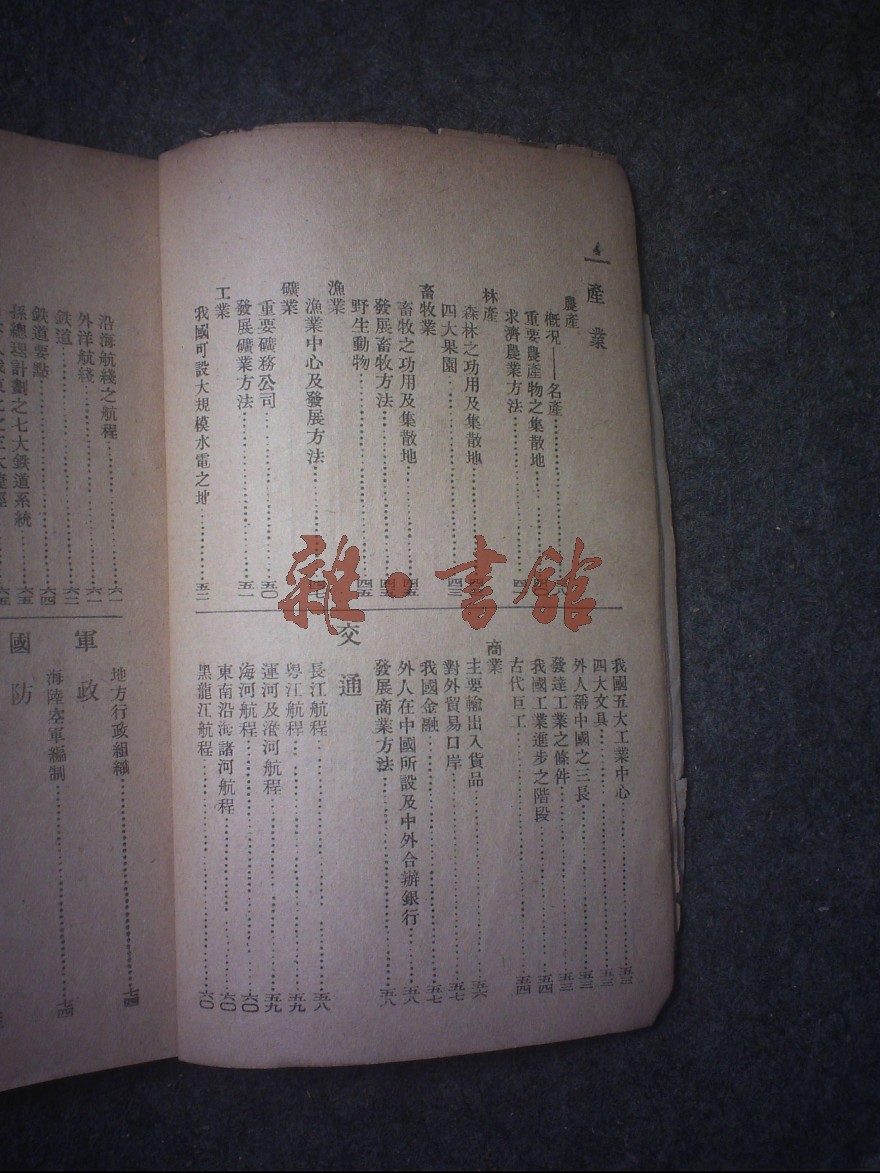 4
產業
農產
概況——名產
重要農產物之集散地
求濟農業方法
林產
森林之功用及集散地
四大果園 四三
畜牧業
畜牧之功用及集散地 四五
發展畜牧方法 四五
野生動物 四五
漁業
漁業中心及發展方法 四七
礦業
重要礦務公司 五〇
發展礦業方法 五一
工業
我國可設大規模水電之地 五二
我國五大工業中心 五三
四大文具 五三
外人稱中國之三長 五三
發達工業之條件 五三
我國工業進步之階段 五四
古代巨工 五四
商業
主要輸出入貨品 五六
對外貿易口岸 五七
我國金融 五七
外人在中國所設及中外合辦銀行 五八
發展商業方法 五八
交通
長江航程 五八
粵江航程 五九
運河及淮河航程 五九
海河航程 六〇
東南沿海諸河航程 六〇
黑龍江航程 六〇
沿海航綫之航程 六一
外洋航綫 六一
鉄道 六二
鉄道要點 六四
孫總理計劃之七大鉄道系統 六五
軍政
地方行政組織 七四
海陸空軍編制 七四
國防
雜·書館